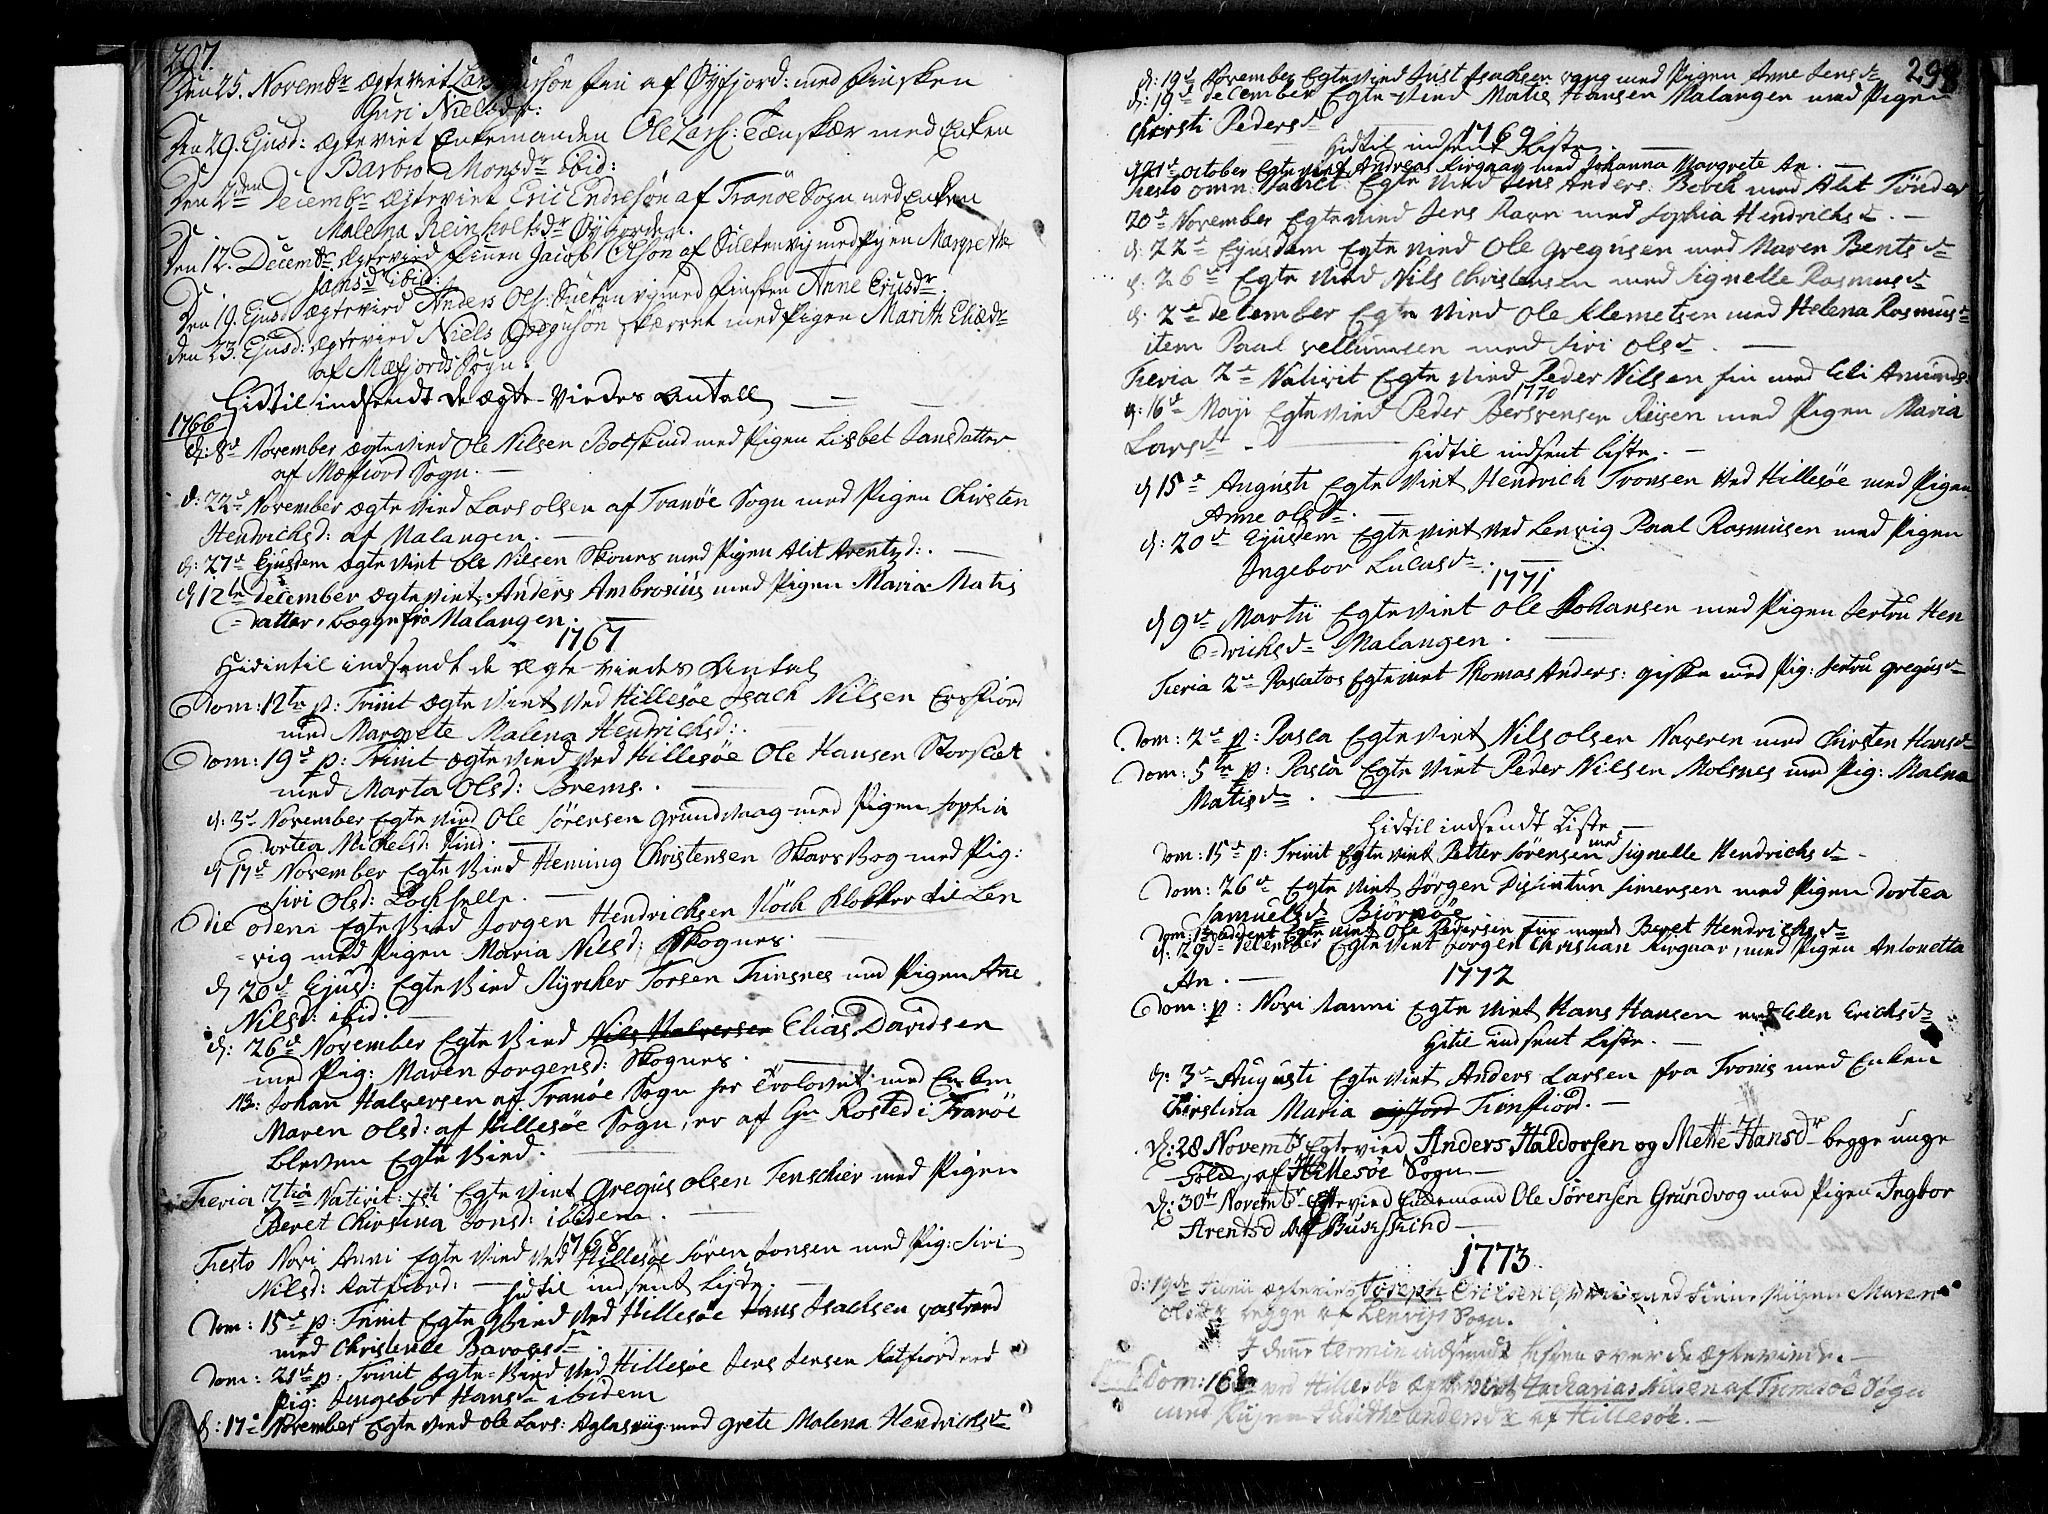 297.
Den 25. Novembr ægteviet Lars fin af Øyfjord: med finsken
Guri Nielsdr:
Den 29. Ejusd: ægteviet Enkemanden Ole Lars: Tænskær med Enken
Barbro Monsdr ibid:
Den 2den Decembr ægteviet Eric Endresøn af Tranøe Sogn med Enken
Malena Reinholtsdr Øyfjorden.
Den 12. Decembr ægtevied finnen Jacob Olsøn af med Pigen Margrethe
Jansdr ibid:
Den 19. Ejusd ægtevied Anders Ols: med finsken Anne
Den 23. Ejusd: ægtevied Niels Gregusøn skærret med Pigen Marith Eliædr
af Mefjords Sogn.
Hidtil indsendt de ægte-Viedes Antall
1766
d: 8de November ægte vied Ole Nilsen Botskind med Pigen Lisbet Jansdatter
af Mæffiord Sogn.
d: 22de November ægte vied Lars olsen af Tranöe Sogn med Pigen Chirsten
Hendrichsd: af Malangen.
d: 27de Ejusdem ægte viet Ole Nilsen Skones med Pigen Alit Arentzd:.
d 12te december ægte viet Anders Ambrosius med Pigen Maria Matis
datter, begge fra Malangen.
1767
Hidintil indsendt de Ægte viedes Antal
Dom: 12te p: Trinit ægte viet ved Hillesøe Isach Nilsen Ersfiord
med Margrete Malena Hendrichsd:.
Dom: 19de p: Trinit ægte vied ved Hillesøe Ole Hansen Storslet
med Marta Olsd: Brems.
d: 3de November Egte vied Ole Sørensen grundvaag med Pigen Sophia
Dortea Michelsd:
d 17de November Egte Vied Heming Christensen Skarsvog med Pig:
Siri Olsd:
Die odem Egte Vied Jorgen Hendrichsen Köch Klokker til Len
vig med Pigen Maria Nilsd: Skognes.
d 20de Ejusd: Egte Vied Torsen Finsnes med Pigen Ane
Nilsd: ibid.
d: 26de November Egte Vied Nils Halversen Elias Davidsen
med Pig: Maren Jorgensd: Skognes.
NB: Johan Halversen af Tranøe Sogn her trolovet med Enken
Maren Olsd: af Hillesøe Sogn, er af Hr Rosted i Tranöe
bleven Egte Vied.
Feria 3tia Nativit: xsti Egte viet Gregus olsen Tenskier med Pigen
Beret Chirstina Jonsd: ibidem.
1768
Festo Novi Anni Egte vied ved Hillesøe Sören Jonsen med Pig: Siri
Nilsd: Katfiord: — Hidtil indsent Liste.
Dom: 15de p: Trinit Egte Vied ved Hillesøe Hans Isachsen vastrand
med Christense
Dom: 21de p: Trinit Egte Vied ved Hillesøe Jens Jensen Katfiord med
Pig: Ingebor Hansd ibidem
d: 17de November Egte vied Ole Lars: med Grete Malena Hendrichsd
298
d: 19de November Egte vied Just Isachsen vang med Pigen Anne Jensd
d: 19de december Egte vied Matis Hansen Malangen med Pigen
Chirsti Pedersd
1769
Hidtil indsent Liste.
d 21de October Egte viet Andreas Kirgaar med Johanna Margrete An.
Festo omn: Sanct: Egte vied Jens Anders: Berch med Alit Tönder
20de November Egte vied Jens Ravn med Sophia Hendrichsd.
d: 22de Ejusdem Egte vied Ole Gregusen med Maren Bentsd
d. 26de Egte vied Nils Christensen med Signelle Rasmusd
d. 2de december Egte vied Ole Klemetsen med Helena Rasmusd
item Paal med Siri Olsd.
Feria 2de Nativit Egte vied Peder Nilsen fin med Eli Amunds
1770
d: 16de Maji Egte vied Peder Bersvensen Reisen med Pigen Maria
Larsd
Hidtil indsent liste.
d 15de Augusti Egte viet Hendrich Tronsen ved Hillesøe med Pigen
Anne olsd.
d: 20de Ejusdem Egte viet ved Lenvig Paal Rasmusen med Pigen
Ingebor Lucasd.
1771
d 9de Martii Egte viet Ole Johansen med Pigen Jertru Hen
drichsd Malangen.
Feria 2de Pascatos Egte viet Thomas Anders: giske med Pig: Jertru gregusd
Dom: 2de p: Pasca Egte viet Nils olsen Naveren med Chirsten Hansd
Dom: 5te p: Pasca Egte viet Peder Nilsen Molsnes med Pig: Malna
Matisd.
Hidtil indsendt Liste
Dom: 15de p: Trinit Egte viet Petter Sörensen med Signelle Hendrichsd
Dom: 26de Egte viet Jørgen Simensen med Pigen Dortea
Samuelsd Björnöe
Dom: 1 advent Egte viet Ole Pedersen fin med Beret Hendrichsd
d. 29de december Egte viet Jorgen Christian Kirgaar, med Pigen Antonetta
An.
1772
Dom: p: Novi Anni Egte viet Hans Hansen med Elen Erichsd
Hitil indsent Liste.
d: 3de Augusti Egte viet Anders Larsen fra Tronis med Enken
Chirstina Maria Finfiord.
d: 28 Novembr Egtevied Anders Haldorsen og Mette Hansdr begge unge
Folk, af Hillesøe Sogn.
d: 30te Novembr Egtevied Enkemand Ole Sørensen Grundvog med Pigen Ingbor
Arentsd af Buskskind
1773.
d: 19de Junii ægtevied Joseph Ericsen med Pigen Maren
Olsdr begge af Lenvigs Sogn.
I denne termin indsendt Listen over de ægteviede.
Dom: 16 ved Hillesöe ægteviet Zacharias af Tromsöe Sogn
med Pigen Andersdr af Hillesöe.